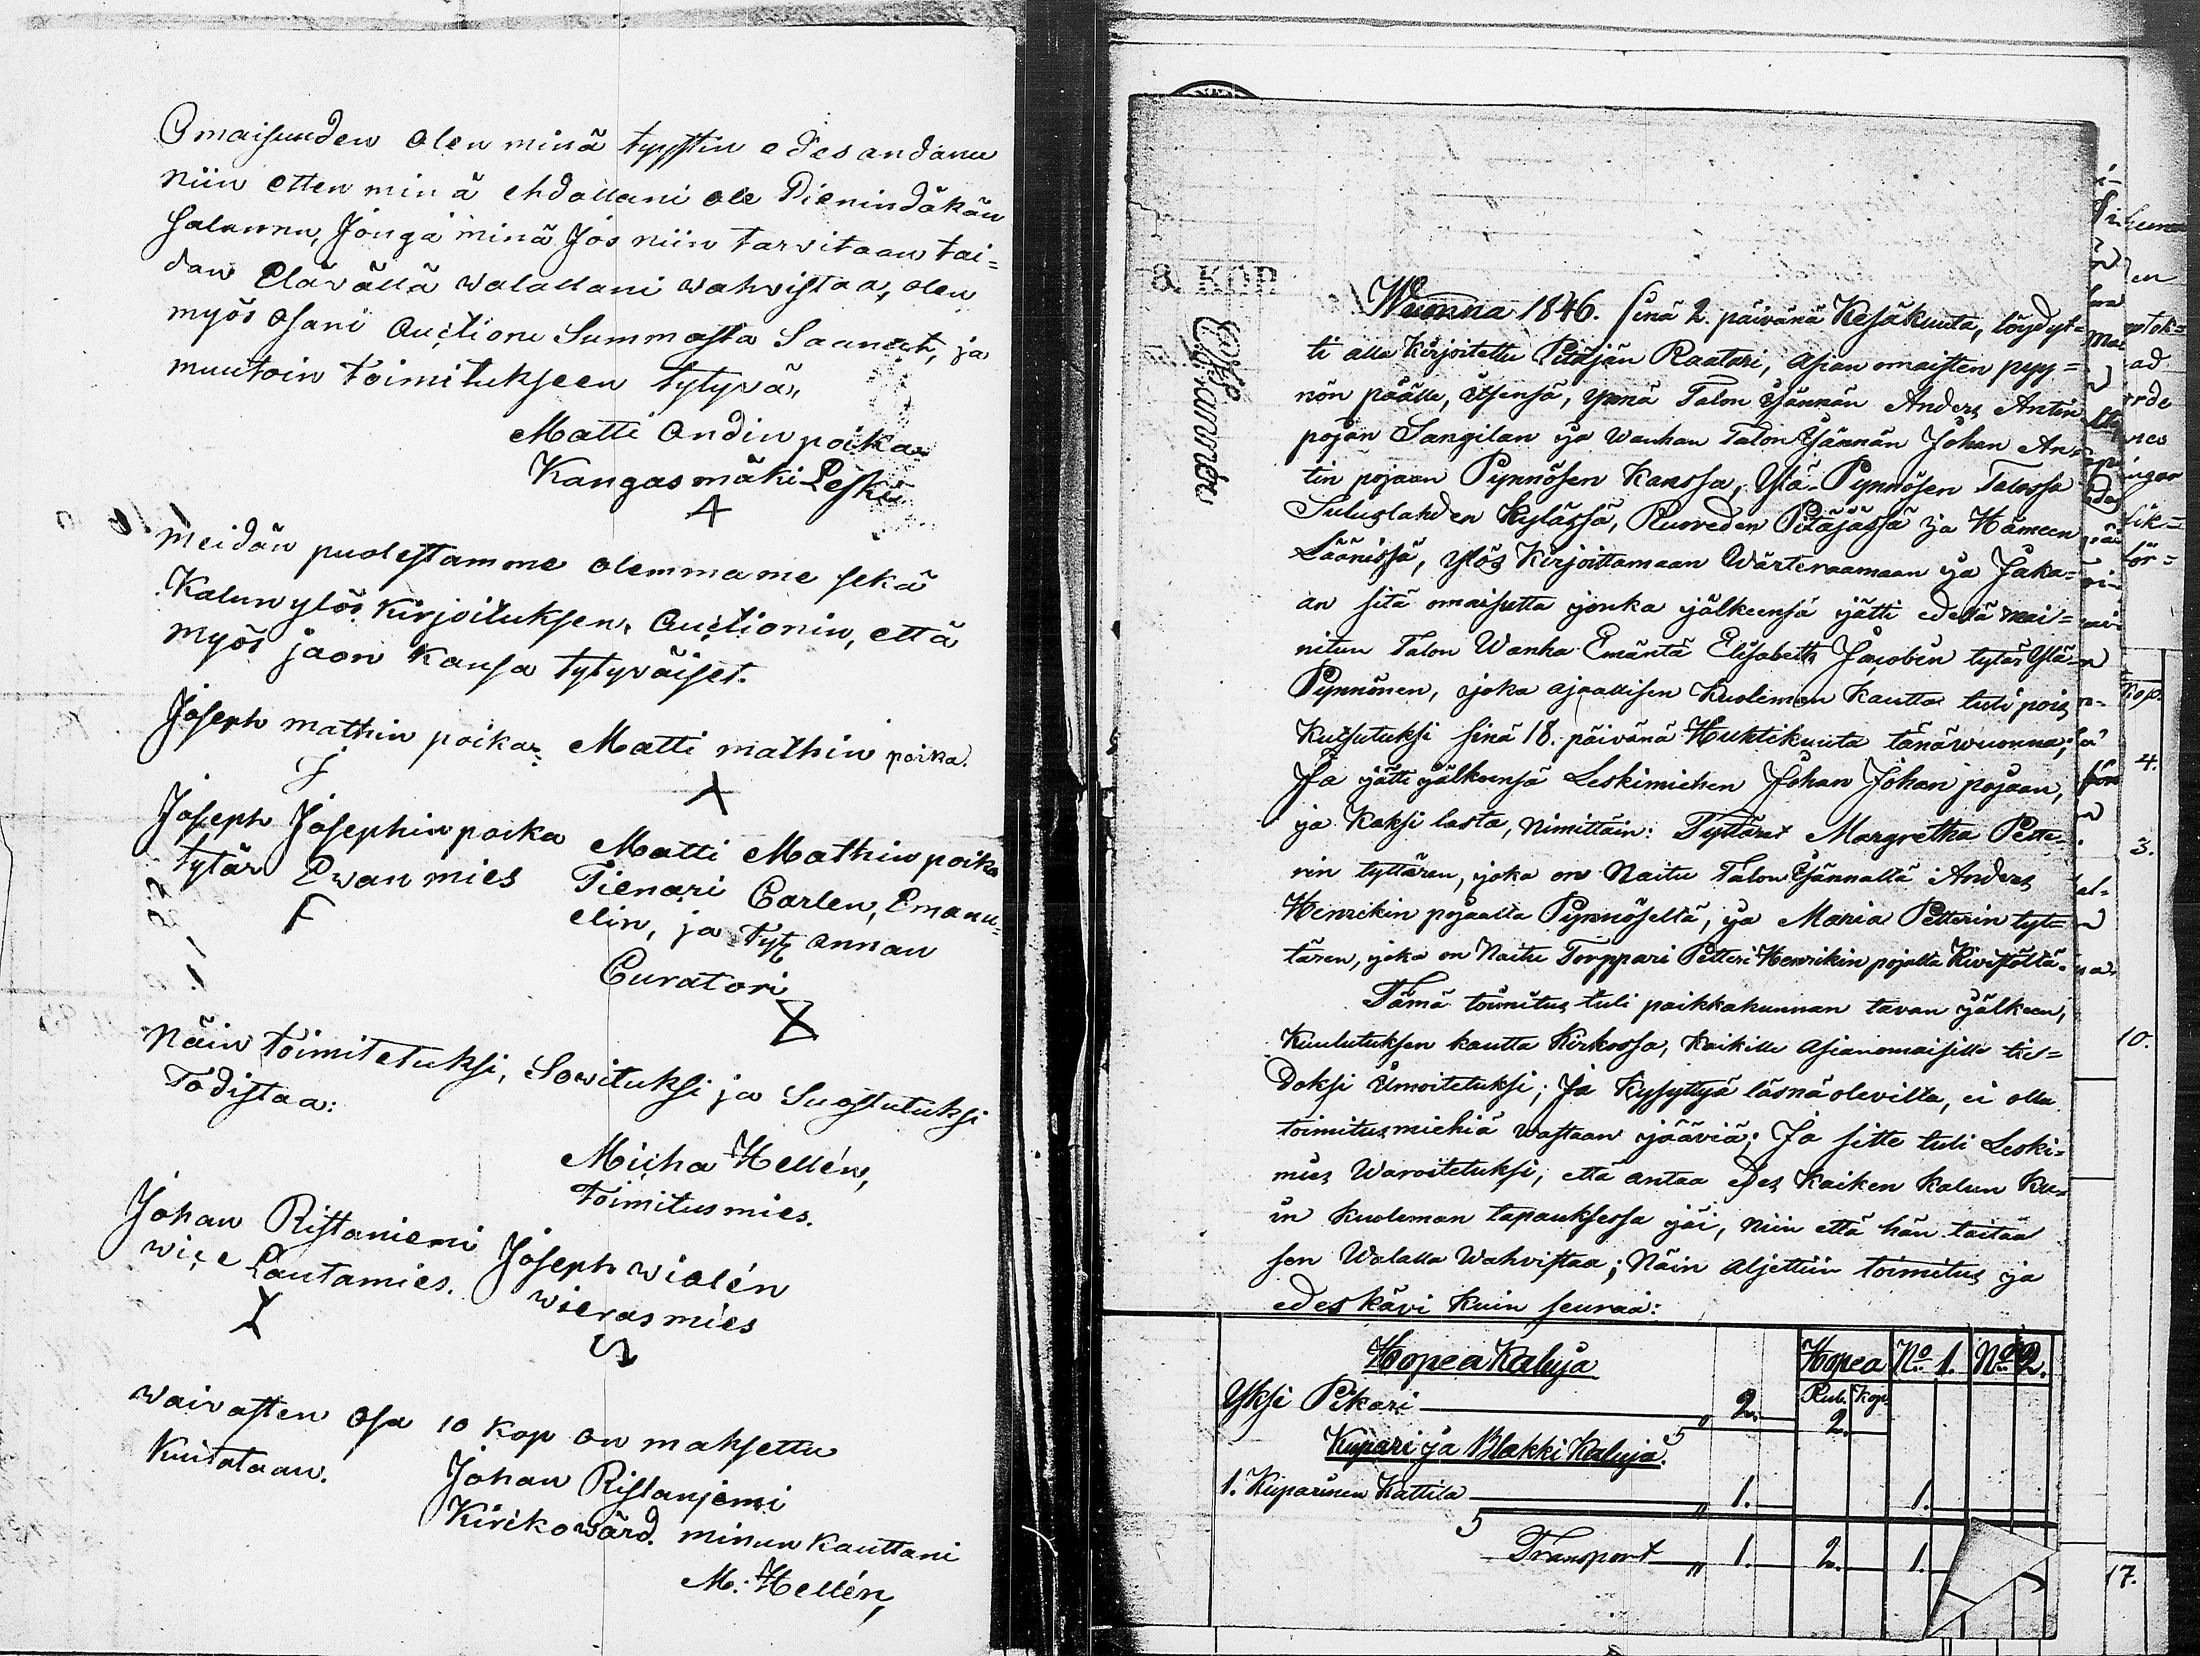 Omaisuuden olen minä tyystin edes andanu
niin etten min ä ehdollani ole Pienindäkän
salannu, Jonga minä Jos niin tarvitaan tai=
dan Elävällä walallani wahvistaa, olen
myös osani Auctioni Summasta Saanut, ja
muutoin toimitukseen tytyvä,
Matti Andin poika
Kangasmäki Leski
Meidän puolestamme olemmame sekä
Kalun ylös kirjoituksen, Auctionin, että
myös jaon kansa tytyväiset.
Joseph mathin poika. Matti mathin poika.
Joseph Josephin poika
tytär Ewan mies
F
Matti Mathin poika
Tienari Carlen, Emanu=
elin, ja Tyt. annan
Curatori
Näin toimitetuksi, Sowituksi ja Suostutuksi
Todistaa:
Micha Hellén,
Toimitusmies.
Johan Ristaniemi
wice Lautamies.
Joseph wialén
wierasmies
waivasten osa 10 kop on maksettu
Kuitataan.
Johan Ristanjemi
Kirikowärd. minun kauttani
M. Hellén,
8. KOP
Wuonna 1846. sinä 2. päivänä Kesäkuuta, löydyt=
ti alla kirjoitettu Pitäjän Raatari, asian omaisten pyy=
nön päälle, itsensä, ynnä Talon Isännän Anders Antin
pojan Sangilan ja wanhan Talon Isännän Johan An=
tin pojaan Pynnösen kanssa, Ylä-Pynnösen Talossa
Suluslahden Kylässä, Ruoveden Pitäjässä ja Hämeen
Läänissä, ylös Kirjoittamaan Wärteraamaan ja Jaka=
an sitä omaisutta jonka jälkeensä jätti edellä mai=
nitun Talon Wanha Emäntä Elisabeth Jacobin tytär Ylä=
Pynnönen, joka ajaallisen Kuoleman Kautta tuli pois
kutsutuksi sinä 18. päivänä Huktikuuta tänäwuonna;
Ja jätti jälkeensä Leskimiehen Johan Johan pojaan,
ja Kaksi lasta, nimittäin: Tyttäret Margretha Pette=
rin tyttären, joka on Naitu Talon Isännällä Anders
Henrikin pojaalla Pynnösellä, ja Maria Petterin tyt=
tären, joka on Naitu Torppari Petteri Henrikin pojalla Kivistöllä.
Tämä toimitus tuli paikkakunnan tavan jälkeen,
Kuulutuksen kautta Kirkossa, kaikille Asianomaisille tie=
doksi ilmoitetuksi; Ja Kysyttyä läsnä olevilta, ei olla
toimitusmiehiä wastaan jääviä; Ja sitte tuli Leski=
mies Waroitetuksi, että antaa edes Kaiken Kalun Ku=
in Kuoleman tapauksessa jäi, niin että hän taitaa
sen Walalla Wahvistaa; Näin aljettiin toimitus ja
edeskävi kuin seuraa:
Hopea Kaluja
Hopea No 1. No 2.
Rub. Kop.
Yksi Pikari " 2. 2.
Kupari ja Blakki Kaluja.
1. Kuparinen Kattila " 1. 1.
Transport " 1. 2. 1.
Kop.
4.
3.
10.
17.